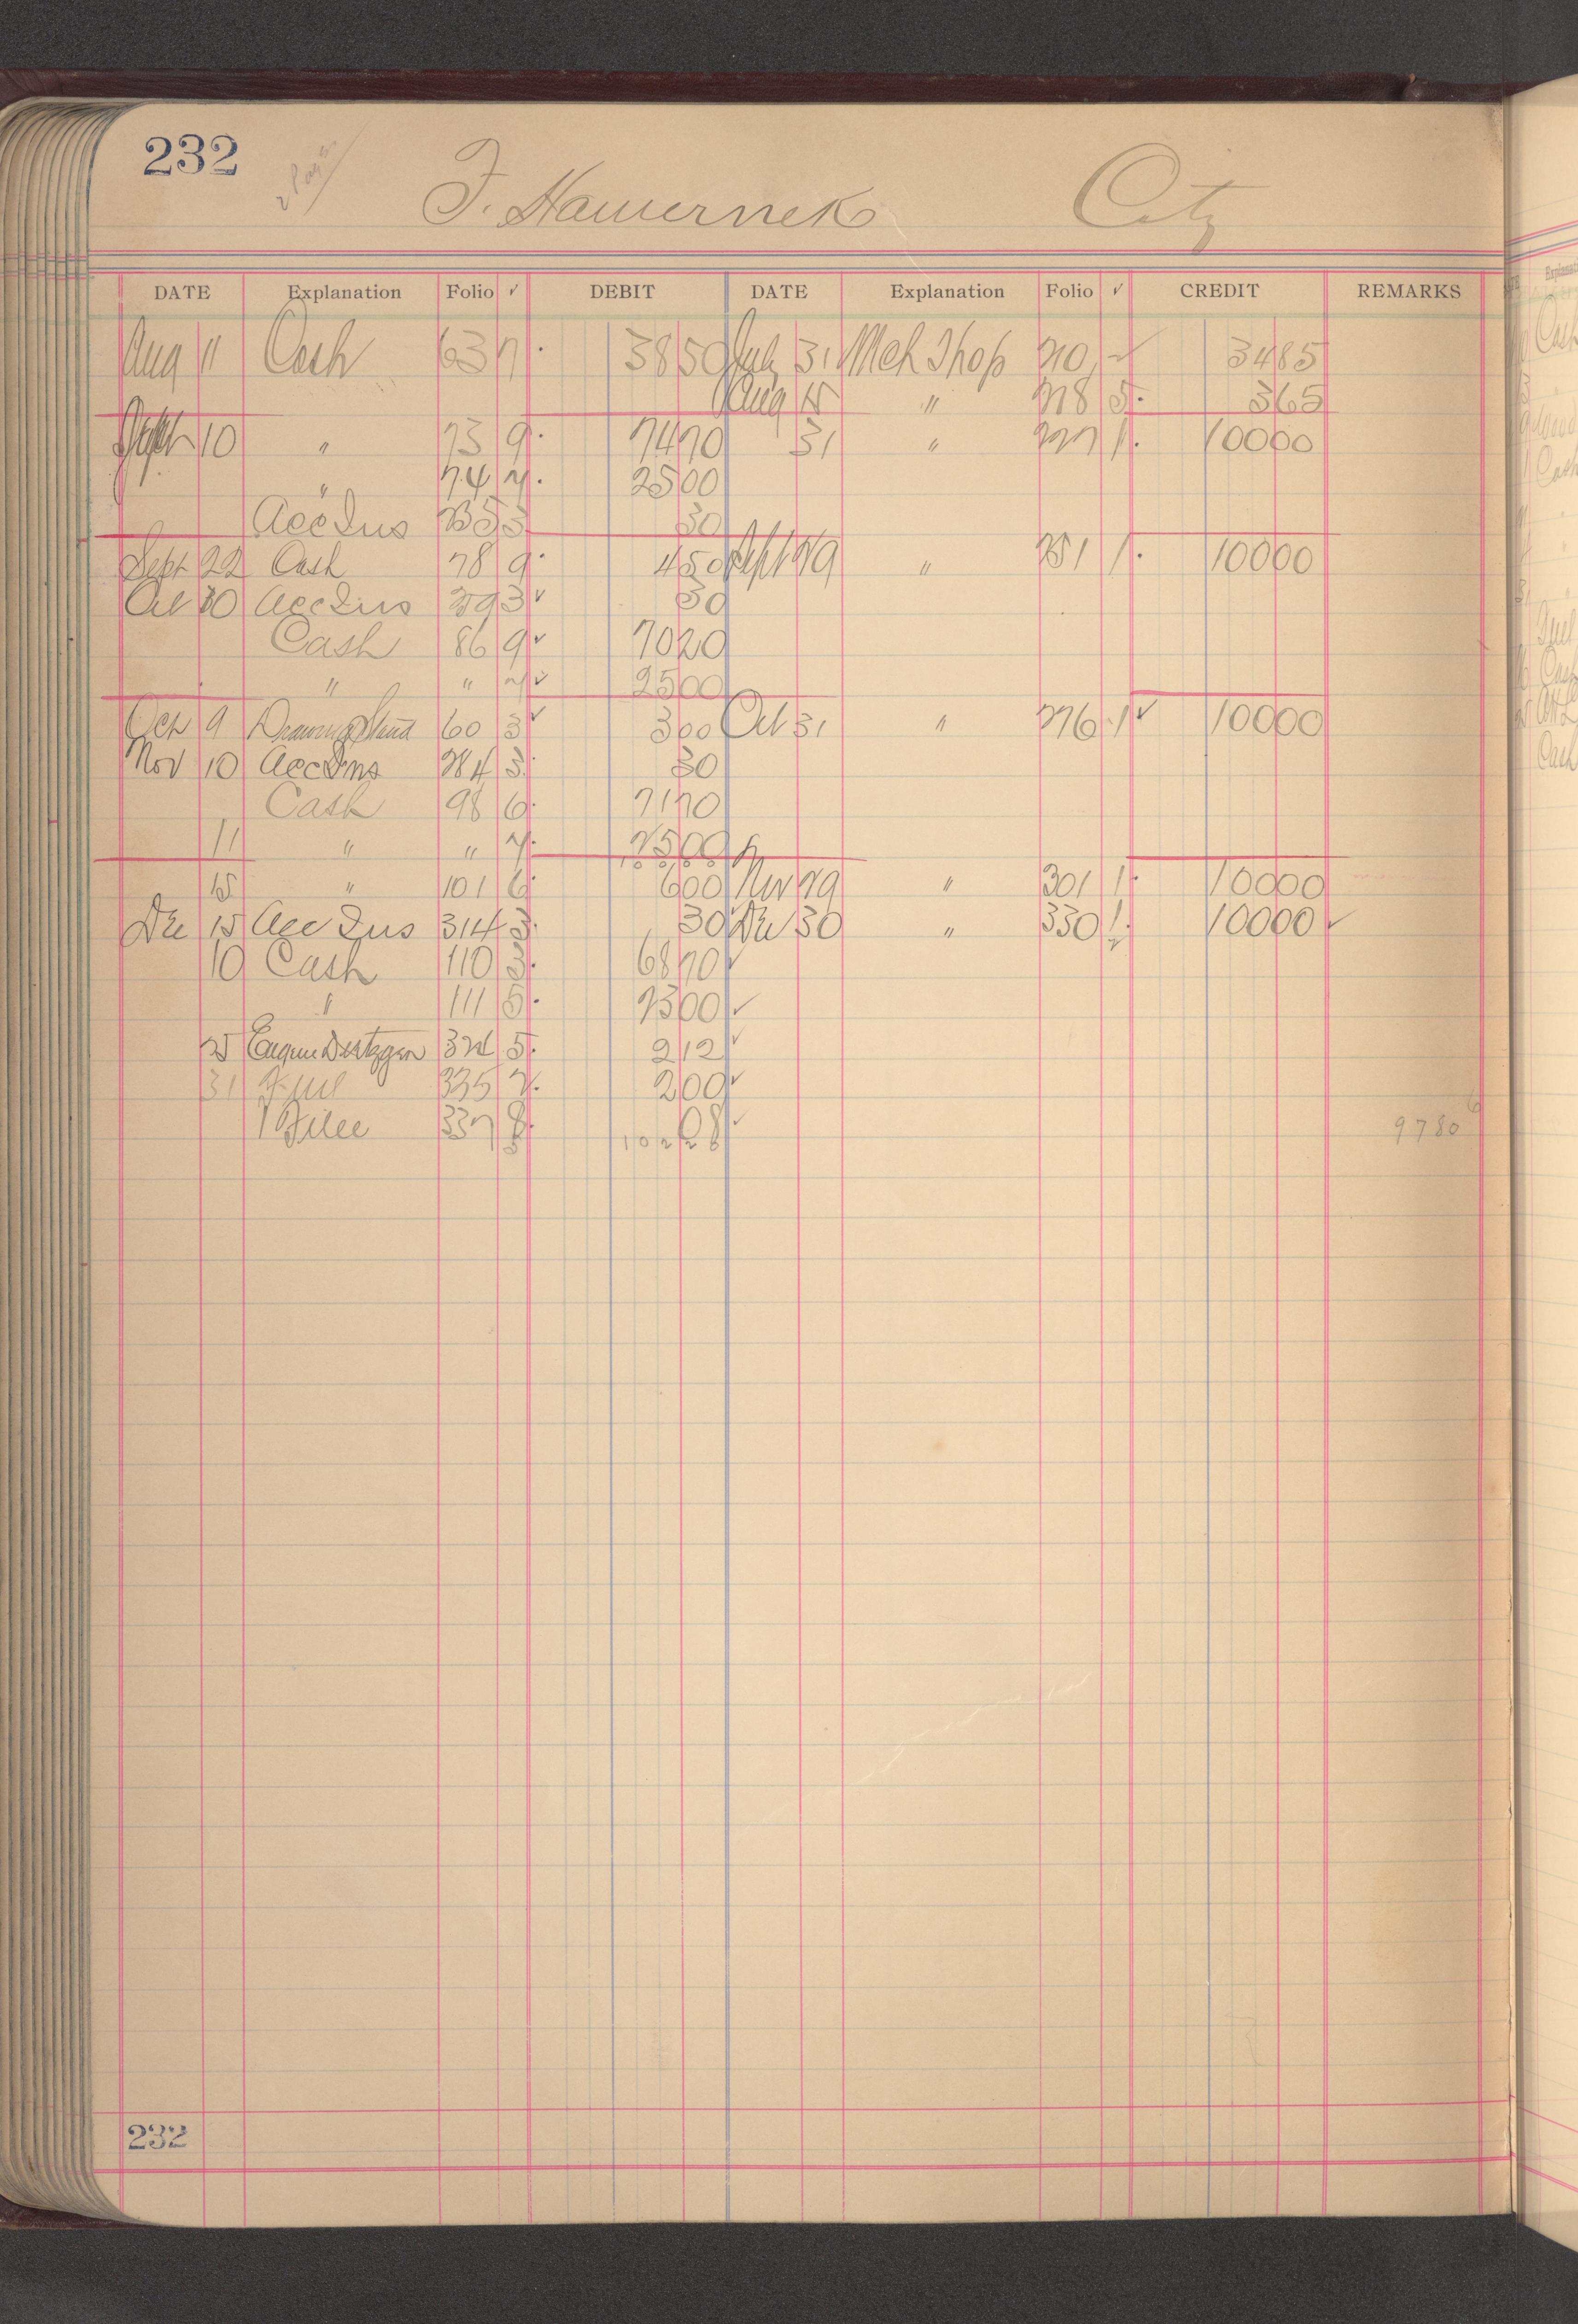 232
F. Hawernek City
DATE Explanation Folio ✓ DEBIT DATE Explanation Folio ✓ CREDIT REMARKS
Aug 11 Cash 63 7 38 50 July 31 Mch Shop 210 ✓ 34 85
Aug 15 " 218 5 3 65
Sept 10 " 73 9 74 70 31 " 227 1 100 00
" 74 7 25 00
Acc Ins 235 3 30
Sept 22 Cash 78 9 4 50 Sept 29 " 251 1 100 00
Oct 10 Acc Ins 259 3 ✓ 30
Cash 86 9 ✓ 70 20
" " 7 ✓ 25 00
Oct 9 Drawing Stand 60 3 ✓ 3 00 Oct 31 " 276 1 ✓ 100 00
Nov 10 Acc Ins 284 3 30
Cash 98 6 71 70
11 " " 7 25 00
15 " 101 6 6 00 Nov 29 " 301 1 100 00
Dec 15 Acc Ins 314 3 30 Dec 30 " 330 1 100 00 ✓
10 Cash 110 3 68 70 ✓
" 111 5 23 00 ✓
25 Eugene Dietzgen 324 5 2 12 ✓
31 Fuel 335 2 2 00 ✓
337 8 28 ✓ 9780
232